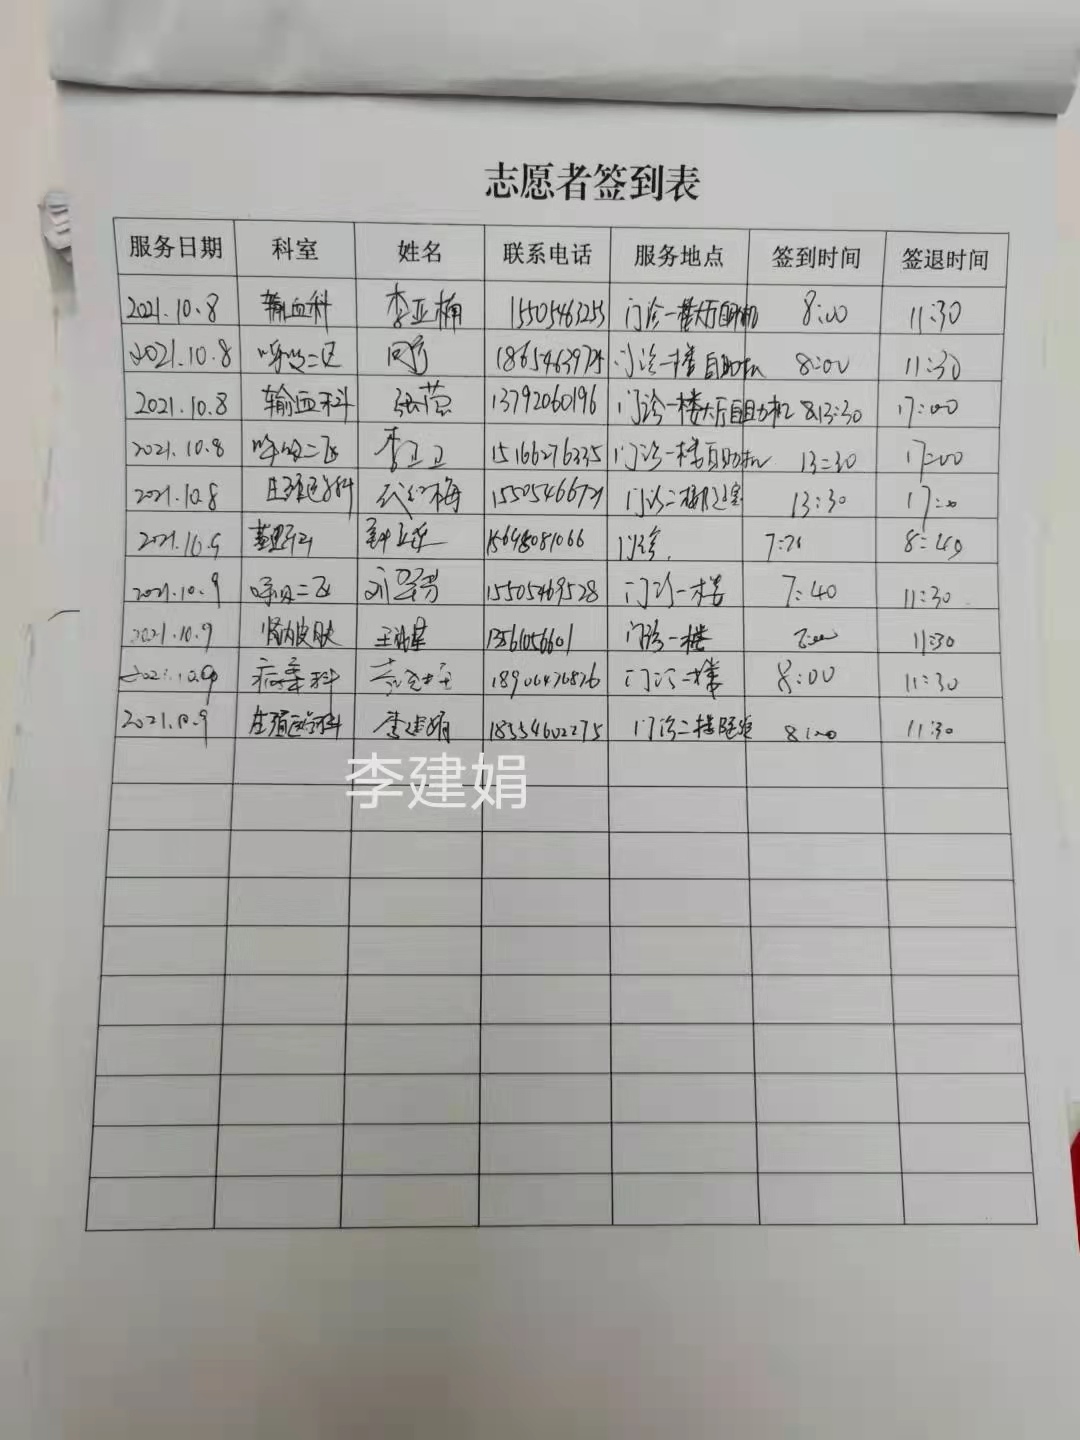 志愿者签到表
服务日期 科室 姓名 联系电话 服务地点 签到时间 签退时间
2021.10.8 输血科 李亚楠 15505463255 门诊一楼大厅自助机 8:00 11:30
2021.10.8 呼吸二区 18654639725 门诊一楼自助机 8:00 11:30
2021.10.8 输血科 张莹 13792060196 门诊一楼大厅自助机 8.13:30 17:00
2021.10.8 呼吸二区 李卫卫 15166276335 门诊一楼自助机 13:30 17:00
2021.10.8 生殖医学科 代红梅 门诊二楼 13:30 17:00
2021.10.9 15698081066 门诊 8:40
2021.10.9 呼吸二区 15505469528 门诊一楼 7:40 11:30
2021.10.9 肾内皮肤 13561056601 门诊一楼 8:00 11:30
2021.10.9 病案科 18906476826 门诊一楼 8:00 11:30
2021.10.9 生殖医学科 李建娟 18554602275 门诊二楼 8:00 11:30
李建娟